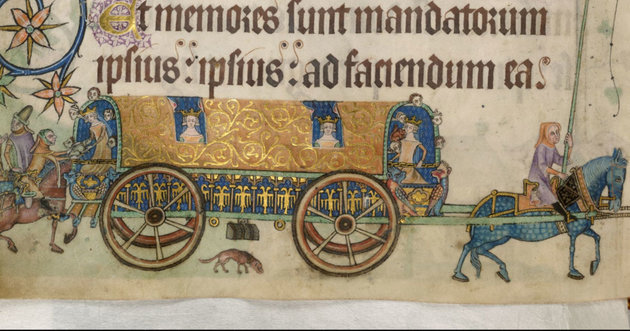 Et memores sunt mandatorum
ipsius: ipsius: ad faciendum ea.